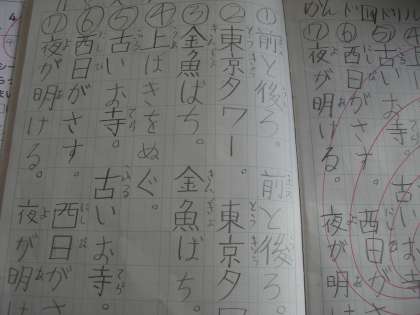 ①前と後ろ。前と後ろ。
②東京タワー。東京タワ
③金魚ばち。金魚ばち。
④上ばきをぬぐ。
⑤古いお寺。古いお寺。
⑥西日がさす。西日がさ
⑦夜が明ける。夜が明け
かんドリ
⑤古いお寺。古いお
⑥西日がさす。西日が
⑦夜が明ける。夜が明